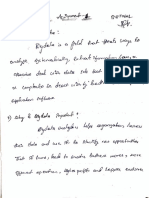 Bigdata is a field that treats ways to
analyze, systematically, extract information from or
otherwise deal with data sets that are
or complex to deal with by
application software
2) Why is Bigdata Important?
Bigdata analytics helps organizations harness
their data and use it to identify new opportunities
That in turn, leads to smarter business moves, more
efficient operations, higher profits and happier customers